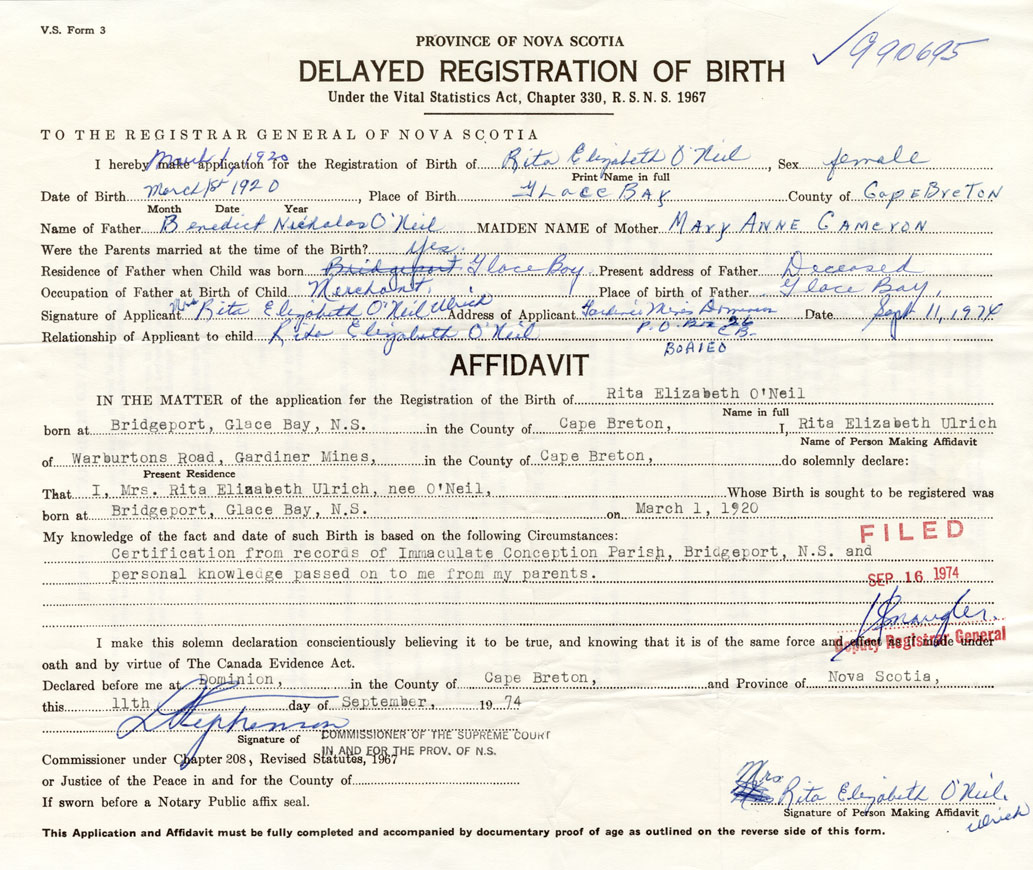 V.S. Form 3
✓990695
PROVINCE OF NOVA SCOTIA
DELAYED REGISTRATION OF BIRTH
Under the Vital Statistics Act, Chapter 330, R.S.N.S. 1967
TO THE REGISTRAR GENERAL OF NOVA SCOTIA
March 1, 1920
I hereby make application for the Registration of Birth of Rita Elizabeth O'Neil, Sex female
Print Name in full
Date of Birth March 1st 1920, Place of Birth GLACE BAY County of CAPE BRETON
Month Date Year
Name of Father Benedict Nicholas O'Neil MAIDEN NAME of Mother MARY ANNE CAMERON
Were the Parents married at the time of the Birth? Yes.
Residence of Father when Child was born Bridgeport Glace Bay Present address of Father Deceased
Occupation of Father at Birth of Child Merchant, Place of birth of Father Glace Bay,
Signature of Applicant Mrs Rita Elizabeth O'Neil Ulrich Address of Applicant Gardiner Mines Dominion Date Sept 11, 1974
P.O. Box 26
C.B.
Relationship of Applicant to child Rita Elizabeth O'Neil
AFFIDAVIT
IN THE MATTER of the application for the Registration of the Birth of Rita Elizabeth O'Neil
Name in full
born at Bridgeport, Glace Bay, N.S. in the County of Cape Breton, I, Rita Elizabeth Ulrich
Name of Person Making Affidavit
of Warburtons Road, Gardiner Mines, in the County of Cape Breton, do solemnly declare:
Present Residence
That I, Mrs. Rita Elizabeth Ulrich, nee O'Neil, Whose Birth is sought to be registered was
born at Bridgeport, Glace Bay, N.S. on March 1, 1920
My knowledge of the fact and date of such Birth is based on the following Circumstances:
FILED
Certification from records of Immaculate Conception Parish, Bridgeport, N.S. and
personal knowledge passed on to me from my parents.
SEP 16 1974
I make this solemn declaration conscientiously believing it to be true, and knowing that it is of the same force and effect as if made under
Deputy Registrar General
oath and by virtue of The Canada Evidence Act.
Declared before me at Dominion, in the County of Cape Breton, and Province of Nova Scotia,
this 11th day of September, 1974
Stephenson
Signature of COMMISSIONER OF THE SUPREME COURT
IN AND FOR THE PROV. OF N.S.
Commissioner under Chapter 208, Revised Statutes, 1967
or Justice of the Peace in and for the County of
If sworn before a Notary Public affix seal.
Mrs
Rita Elizabeth O'Neil
Ulrich
Signature of Person Making Affidavit
This Application and Affidavit must be fully completed and accompanied by documentary proof of age as outlined on the reverse side of this form.